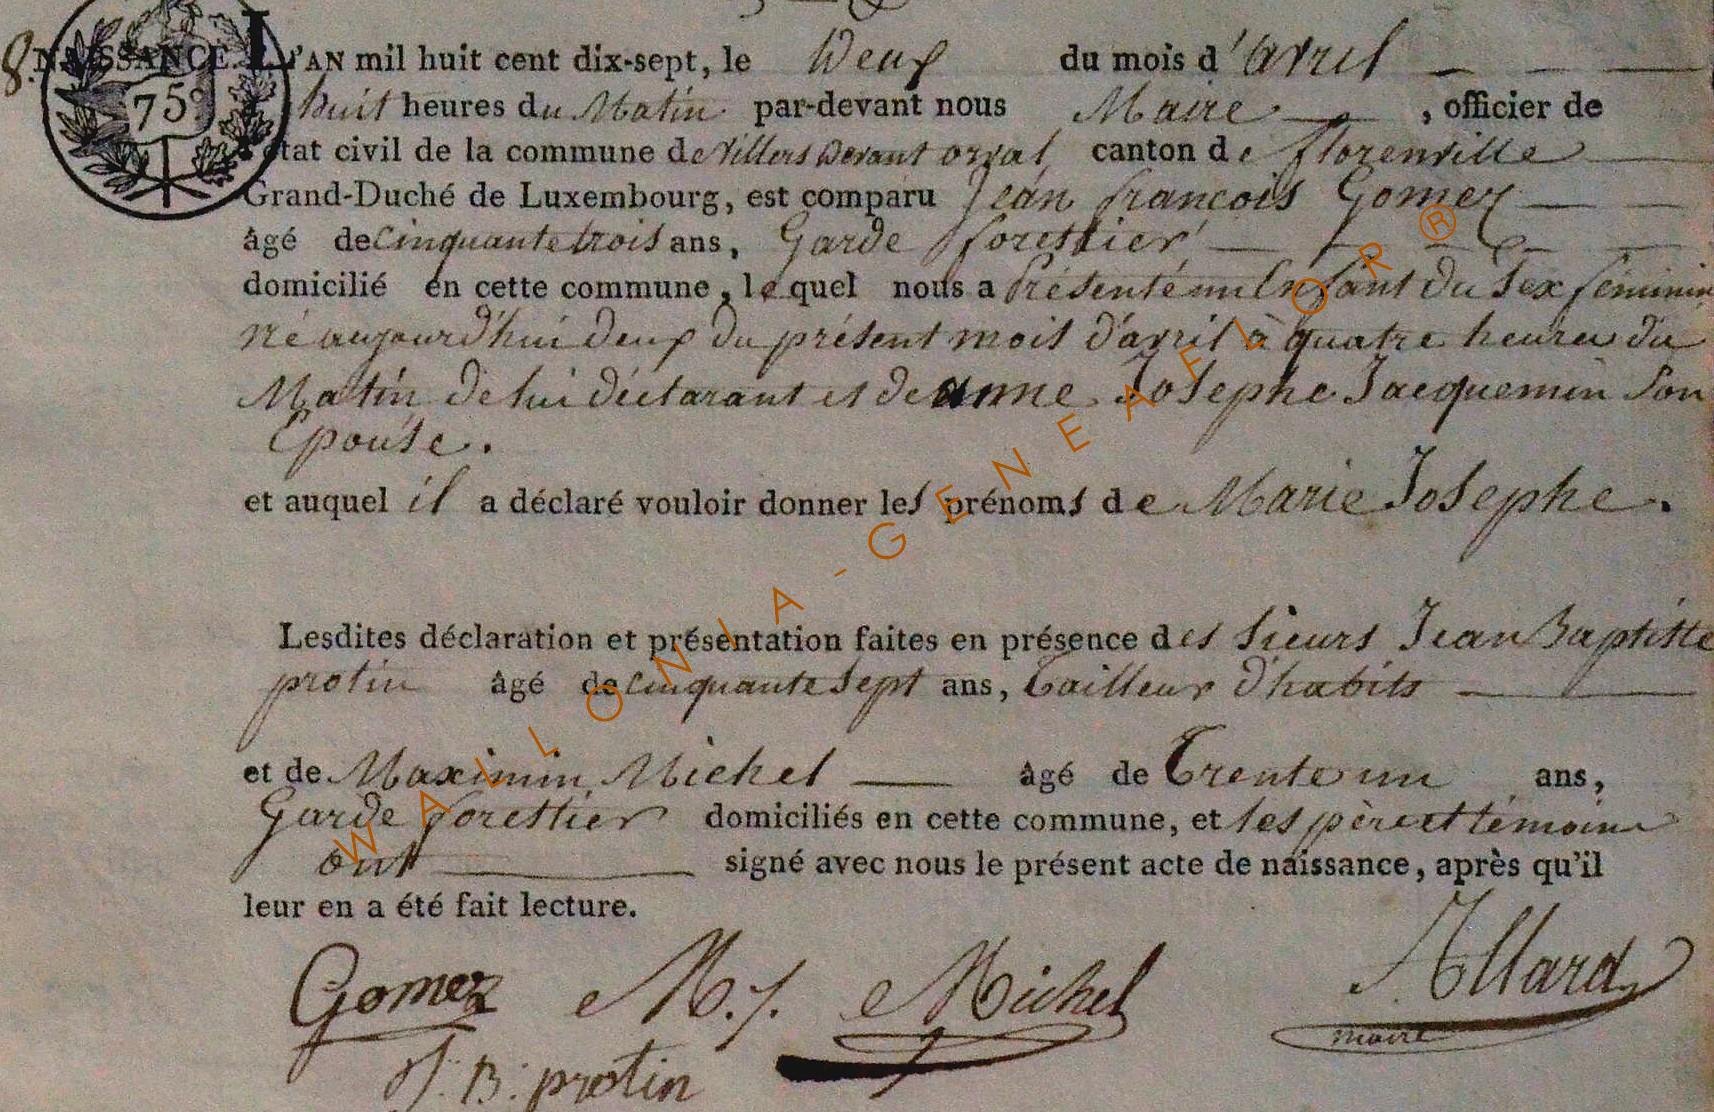 8. NAISSANCE. L'AN mil huit cent dix-sept, le Deux du mois d'avril
75
huit heures du Matin par-devant nous Maire, officier de
état civil de la commune de Villers devant orval, canton de florenville
Grand-Duché de Luxembourg, est comparu Jean françois Gomez
âgé de cinquante trois ans, Garde forettier
domicilié en cette commune, lequel nous a présenté un Enfant du Sex féminin
né aujourd'hui deux du présent mois d'avril à quatre heures du
Matin de lui déclarant et de anne Josephe Jacquemin Son
Epouse.
et auquel il a déclaré vouloir donner les prénoms de Marie Josephe.
Lesdites déclaration et présentation faites en présence des Sieurs Jean Baptiste
protin âgé de cinquante Sept ans, Tailleur d'habits
et de Maximin Michel âgé de Trente un ans,
Garde forettier domiciliés en cette commune, et les père et témoins
ont signé avec nous le présent acte de naissance, après qu'il
leur en a été fait lecture.
Gomez M. J. Michel Allard
maire
J. B. protin
WALLONIA-GENEAFLOR®